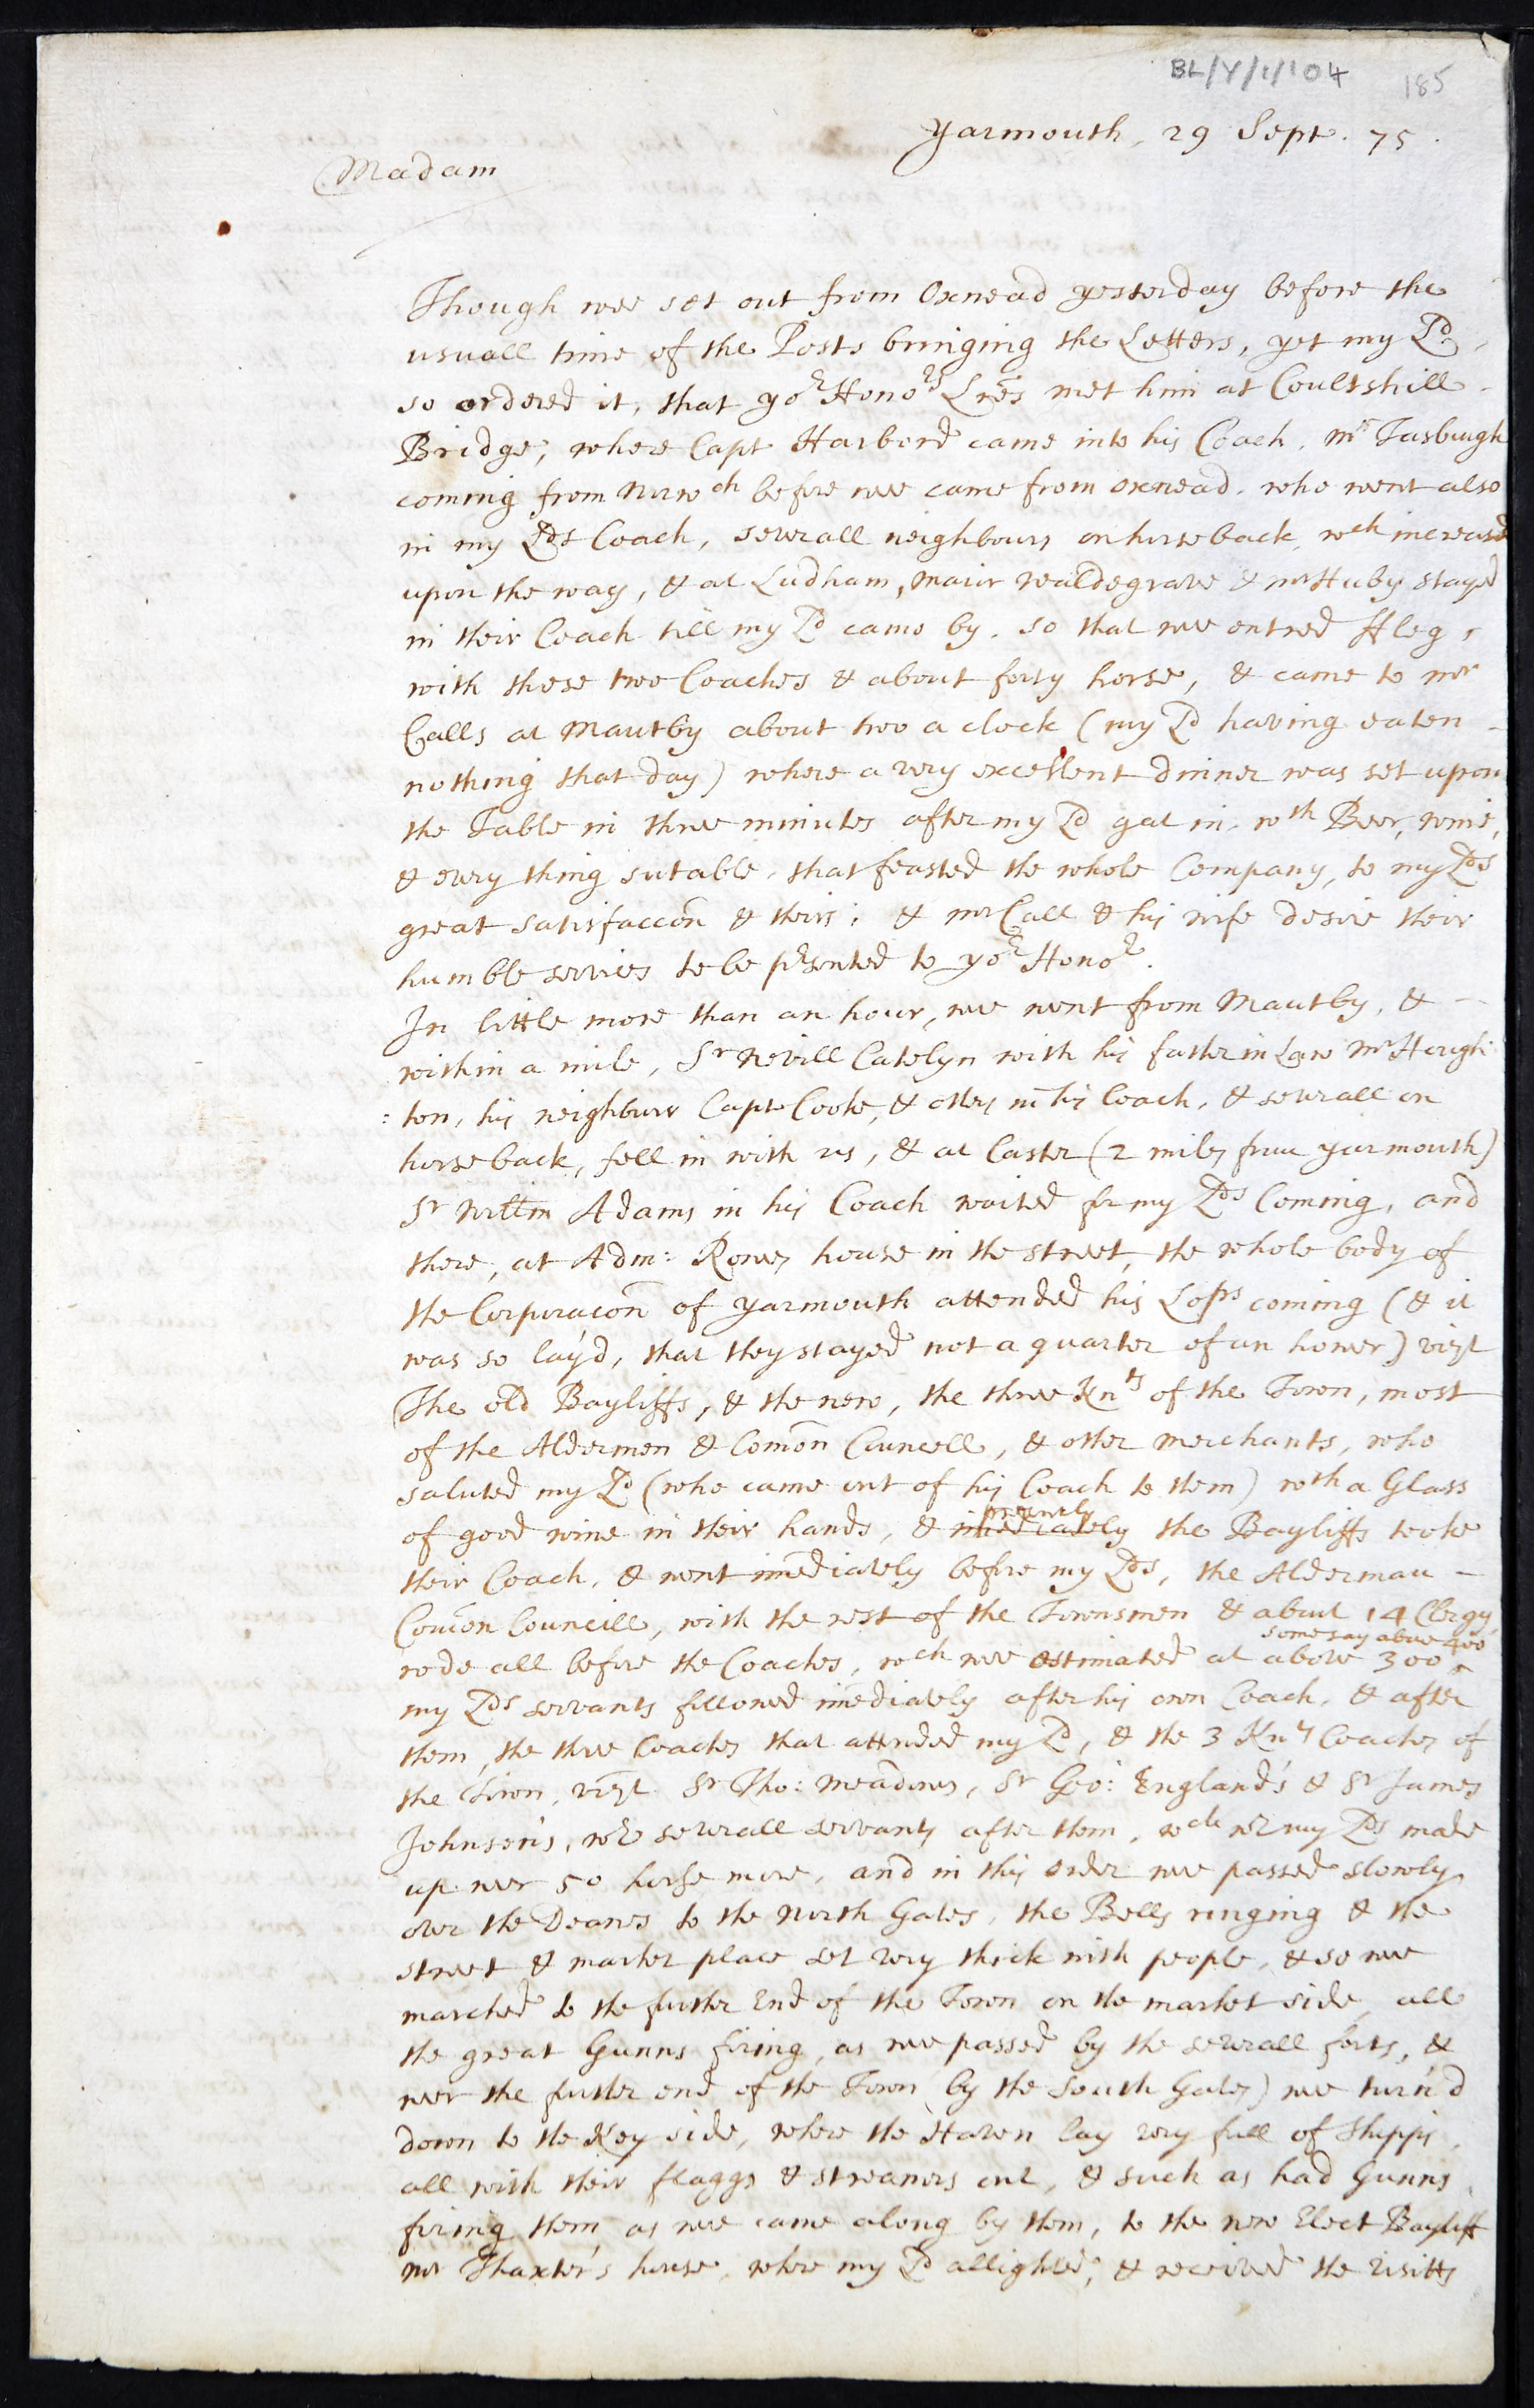 BL/Y/1/104 185
Yarmouth, 29 Sept. 75.
Madam
Though wee set out from Oxnead yesterday before the
usuall time of the Posts bringing the Letters, yet my Ld
so ordered it, that yor Honors Lres met him at Coultshill
Bridge, where Capt Harbord came into his Coach, Mr Tasburgh
coming from Norwch before wee came from Oxnead, who went also
in my Lds Coach, severall neighbours on horseback, wch increased
upon the way, & at Ludham, Maior Waldegrave & Mr Huby stayed
in their Coach till my Ld came by. so that wee entred Ffleg,
with those two Coaches & about forty horse, & came to Mr
Calls at Mautby about two a clock (my Ld having eaten
nothing that day) where a very excellent dinner was set upon
the Table in three minutes after my Ld gat in, wth Beer, wine,
& every thing sutable, that feasted the whole Company, to my Lds
great satisfaccon & theirs; & Mr Call & his wife desire their
humble services to be presented to yor Honor.
In little more than an hour, wee went from Mautby, &
within a mile, Sr Nevill Catelyn with his father in Law Mr Hough
:ton, his neighbour Capt Cooke, & others in his Coach, & severall on
horseback, fell in with us, & at Caster (2 miles from Yarmouth)
Sr Willm Adams in his Coach waited for my Lds Coming, and
there, at Adm: Rowes house in the street, the whole body of
the Corporacon of Yarmouth attended his Lops coming (& it
was so lay'd, that they stayed not a quarter of an hower) vizt
The old Bayliffs, & the new, the three Knts of the Town, most
of the Aldermen & Comon Councell, & other Merchants, who
saluted my Ld (who came out of his Coach to them) wth a Glass
of good wine in their hands, & imediately presently the Bayliffs tooke
their Coach, & went imediately before my Lds, the Alderman
Comon Councill, with the rest of the Townsmen & about 14 Clergy
rode all before the Coaches, wch wee estimated at above 300, some say above 400
my Lds servants followed imediately after his own Coach, & after
them, the three Coaches that attended my Ld, & the 3 Knts Coaches of
the Town, vizt Sr Tho: Meadows, Sr Geo: England's & Sr James
Johnson's, wth severall servants after them, wch wth my Lds made
up neer 50 horse more, and in this order wee passed slowly
over the Deanes to the North Gates, the Bells ringing & the
street & market place set very thick with people, & so wee
marched to the further End of the Town on the market side, all
the great Gunns firing, as wee passed by the severall forts, &
neer the further end of the Town (by the South Gates) wee turn'd
down to the Key side, where the Haven lay very full of Shipps,
all with their flaggs & streamers out, & such as had Gunns
firing them, as wee came along by them, to the new Elect Bayliff
Mr Thaxter's house, where my Ld allighted, & received the visitts